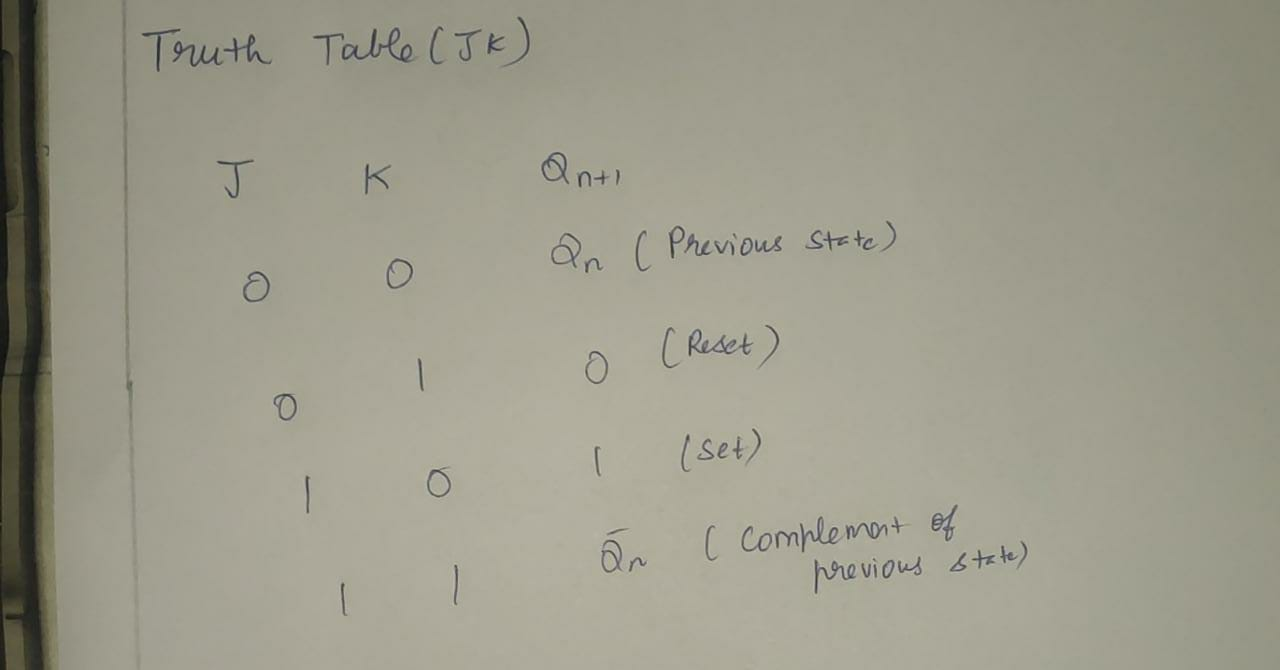 Truth Table (JK)
J K Qn+1
0 0 Qn (Previous state)
0 1 0 (Reset)
1 0 1 (Set)
1 1 Q̄n (Complement of
previous state)